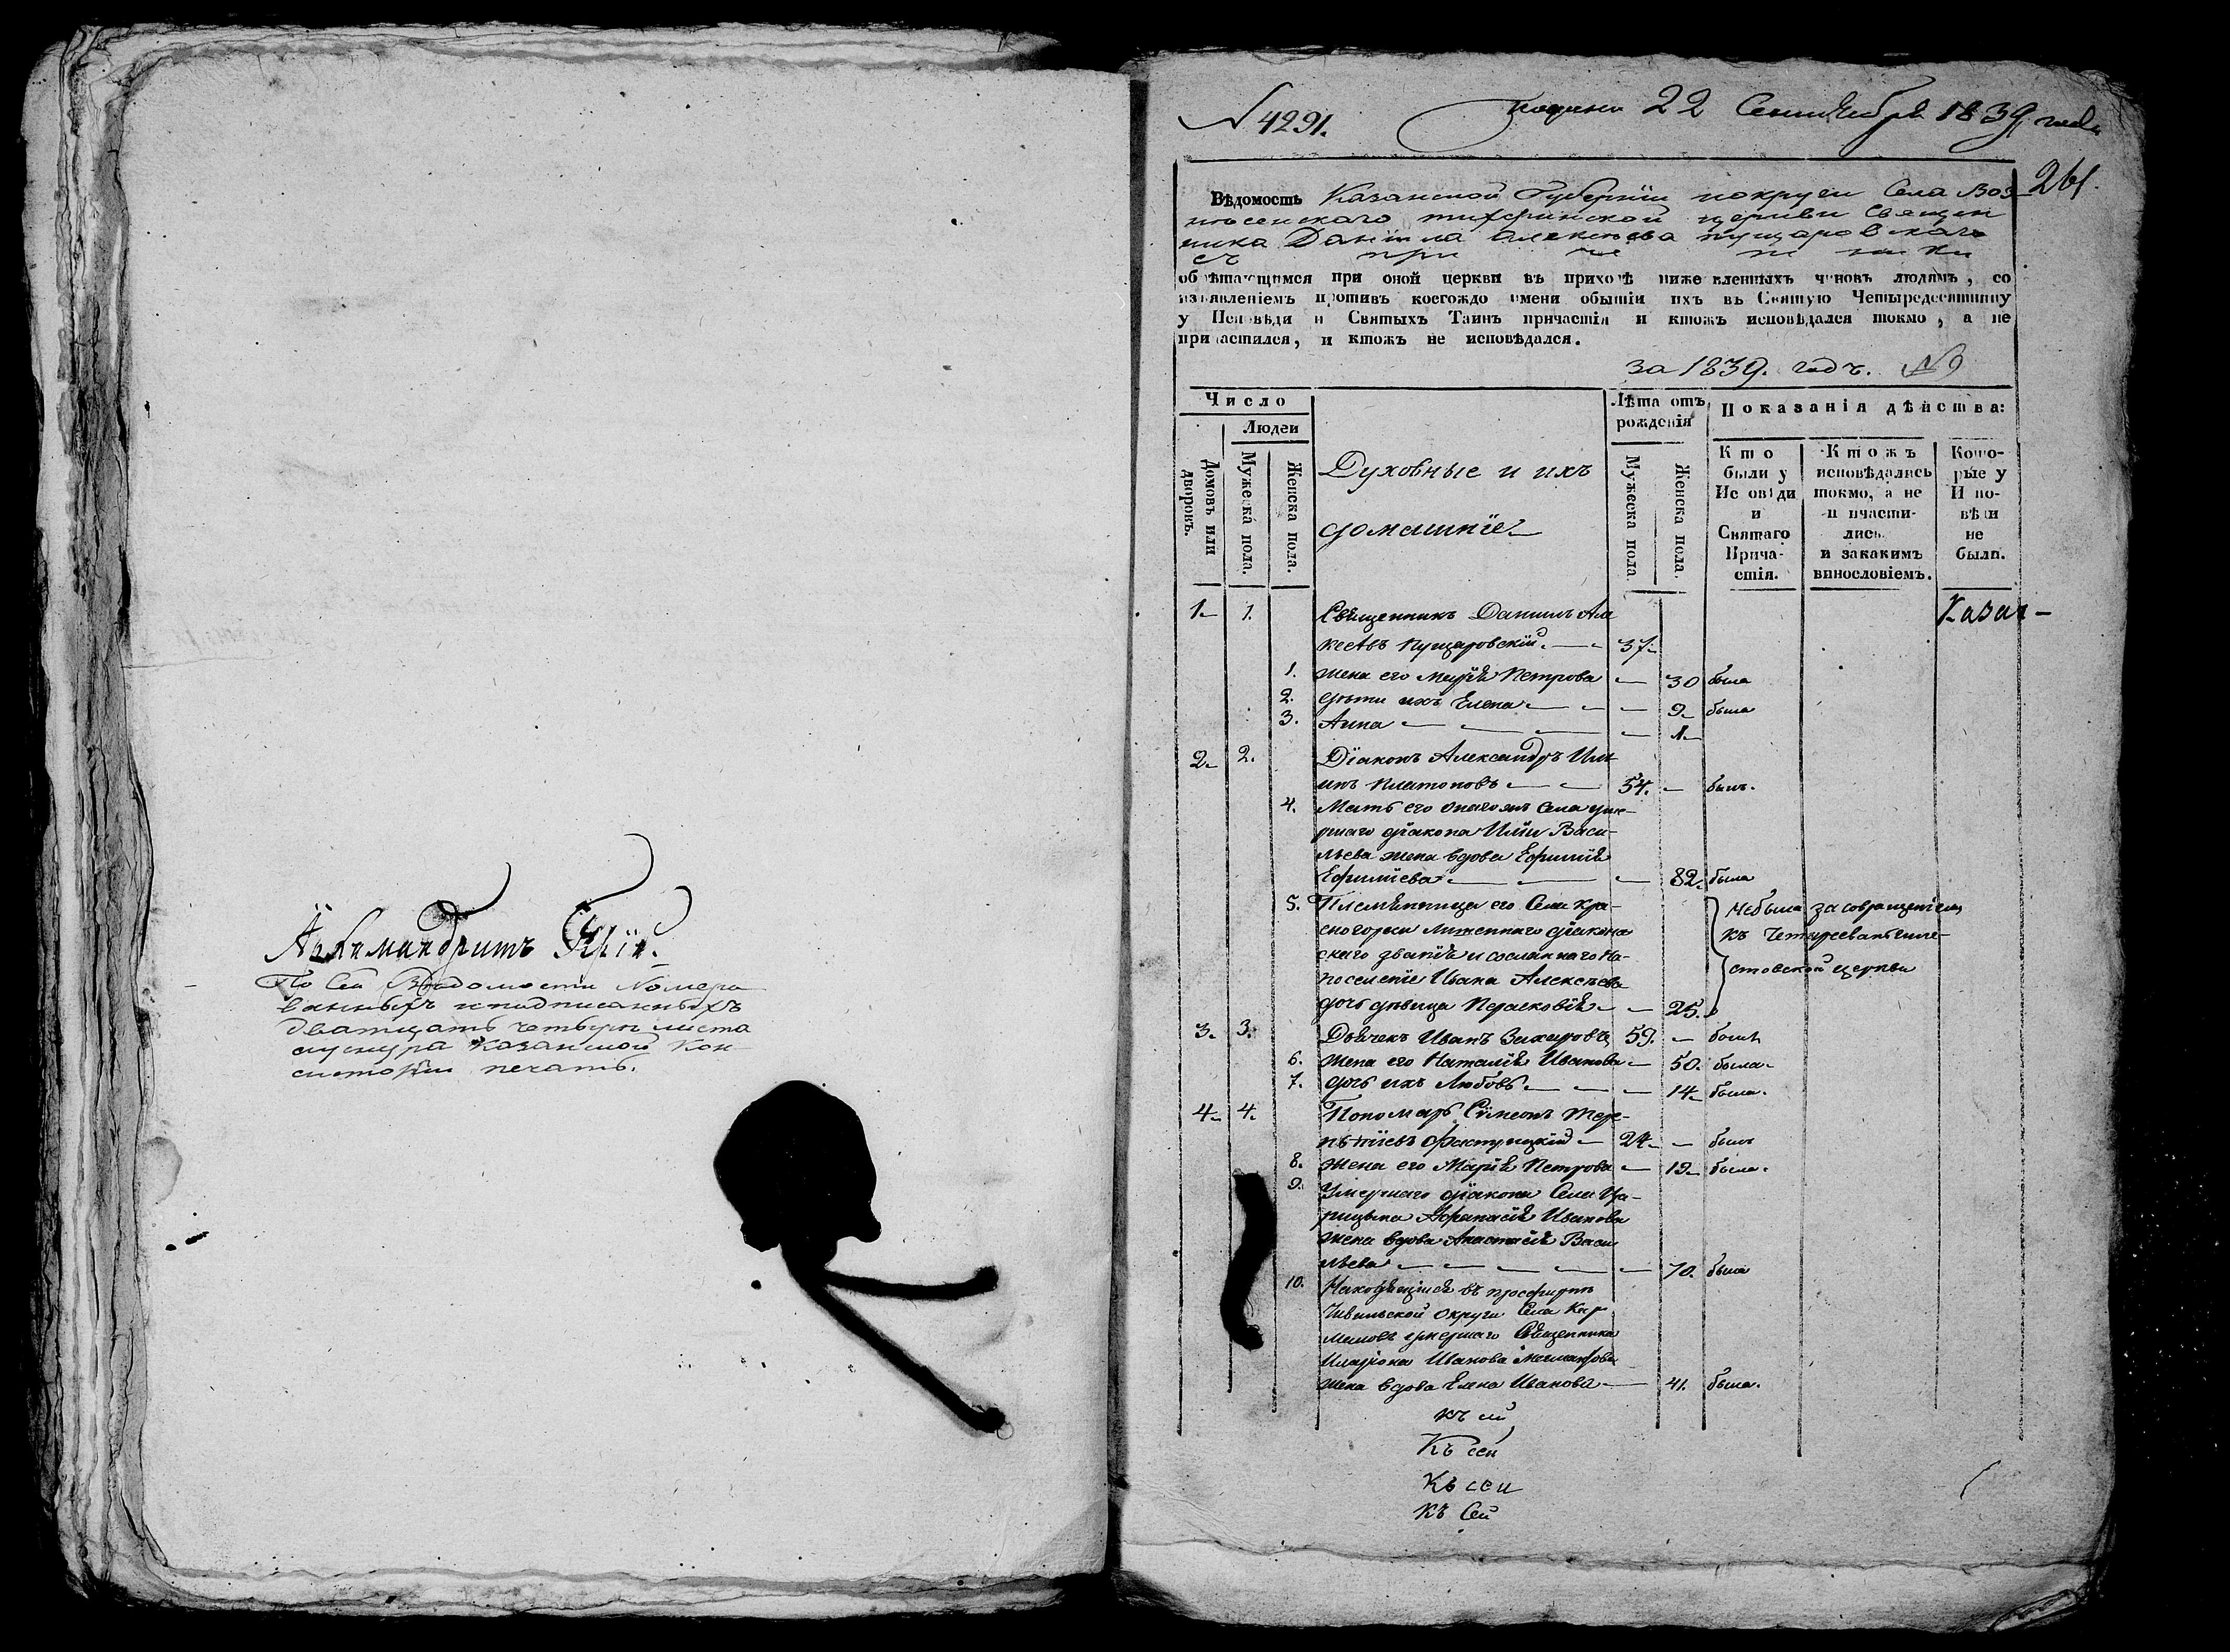 Архимандритъ Гурій.
По Сей Ведомости Номеро
ванныхъ и подписанныхъ
дватцать четыри листа
скунура Казанской Кон
систоріи печать.
N 4291. подана 22 Сентября 1839 года
261.
Вѣдомость Казанской Губерніи покруги Села Воз-
несенскаго тихфинской церкви Священ
ника Даніила Алексѣева пущаровскаго
съ при че т ни ки
обрѣтающимся при оной церкви въ приходѣ нижеявленныхъ чиновъ людямъ, со
изъявленіемъ противъ коегождо имени обытіи ихъ въ Святую Четыредесятницу
у Исповѣди и Святыхъ Таинъ причастія и ктожъ исповѣдался токмо, а не
причастился, и ктожъ не исповѣдался.
за 1839. годъ. № 9
Число
Людей
Домовъ или дворовъ.
Мужеска пола.
Женска пола.
Духовные и ихъ
домашніе
Лѣта отъ
рожденія
Мужеска пола
Женска пола.
Показанія дѣйства:
Кто
были у
Исповѣди
и
Святаго
Прича-
стія.
Ктожъ
исповѣдались
токмо, а не
причасти-
лись.
и закакимъ
винословіемъ.
Кото-
рые у
Испо-
вѣди
не
были.
1. 1. Священникъ Даниилъ Але
Казан-
ксеевъ Пущаровскій. 37.
1. жена его Марія Петрова 30 была
2. дѣти ихъ Елена 9. была
3. Анна 1.
2. 2. Діаконъ Александръ Иль
инъ Платоновъ 54. былъ.
4. Мать его онагожъ Села уме-
ршаго діакона Ильи Васи-
льева жена вдова Ефимія
Ефиміева 82. была
5. Племянница его Села Кра-
сногорки лишеннаго діакон
скаго званія и сосланнаго на
поселеніе Ивана Алексѣева
дочь дѣвица Парасковія 25.
небыла за совращеніем
къ Четыреевангели-
стовской церкви
3. 3. Дьячекъ Иванъ Захаровъ 59. былъ
6. жена его Наталія Иванова 50. была.
7. дочь ихъ Любовь 14. была.
4. 4. Пономарь Сімеонъ Тере-
нтіевъ 24. былъ
8. жена его Марія Петрова 19. была.
9. Умершаго діакона Села Ца-
рицына Афанасія Иванова
жена вдова Анастасія Васи
льева 70. была
10. Находящаяся въ просфирнѣ
Цивильской округи Села Кар
мамов умершаго Священника
Иларіона Иванова
жена вдова Елена Иванова 41. была.
къ сей
Къ сей
Къ сей
къ Сей